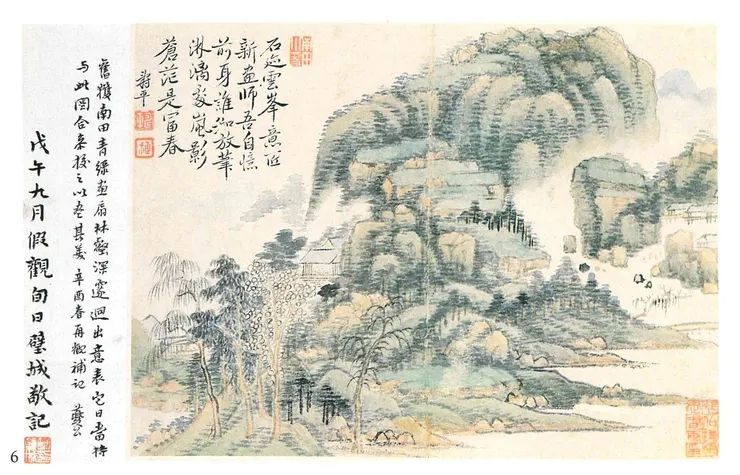 石迹雲峯意匠
新畫師吾自憶
前身誰知放筆
淋漓處嵐影
蒼茫是富春
壽平
舊獲南田青綠畫扇林壑深邃迥出意表它日當持
与此圖合
校之以
其美 辛酉春再觀補記
戊午九月假觀旬日璧城敬記
6